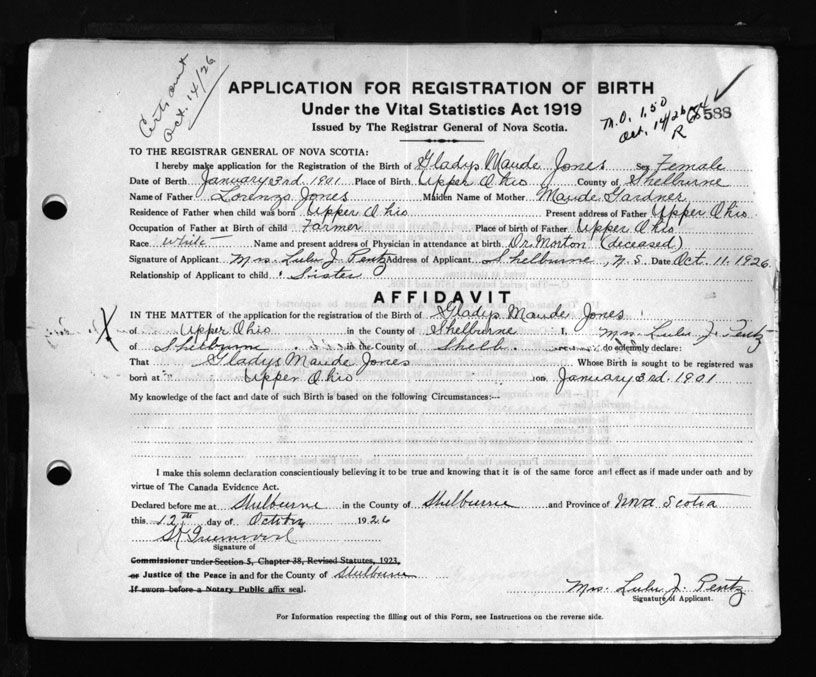 Cert. sent
Oct. 14/26
APPLICATION FOR REGISTRATION OF BIRTH
Under the Vital Statistics Act 1919
Issued by The Registrar General of Nova Scotia.
M.O. 1.50
Oct. 14/26
R
588
TO THE REGISTRAR GENERAL OF NOVA SCOTIA:
I hereby make application for the Registration of the Birth of Gladys Maude Jones Sex Female
Date of Berth January 3rd. 1901 Place of Birth Upper Ohio County of Shelburne
Name of Father Lorenzo Jones Maiden Name of Mother Maude Gardner
Residence of Father when child was born Upper Ohio Present address of Father Upper Ohio
Occupation of Father at Birth of child Farmer Place of birth of Father Upper Ohio
Race White Name and present address of Physician in attendance at birth Dr. Morton (deceased)
Signature of Applicant Mrs. Lulu J. Pentz Address of Applicant Shelburne, N.S. Date Oct. 11. 1926
Relationship of Applicant to child Sister
AFFIDAVIT
IN THE MATTER of the application for the registration of the Birth of Gladys Maude Jones
X of Upper Ohio in the County of Shelburne I, Mrs. Lulu J. Pentz
of Shelburne in the County of Shelb. do solemnly declare:
That Gladys Maude Jones Whose Birth is sought to be registered was
born at Upper Ohio on January 3rd. 1901
My knowledge of the fact and date of such Birth is based on the following Circumstances:—
I make this solemn declaration conscientiously believing it to be true and knowing that it is of the same force and effect as if made under oath and by
virtue of The Canada Evidence Act.
Declared before me at Shelburne in the County of Shelburne and Province of Nova Scotia
this 12th day of October 1926
Signature of
Commissioner under Section 5, Chapter 38, Revised Statutes, 1923,
or Justice of the Peace in and for the County of Shelburne
If sworn before a Notary Public affix seal.
Mrs. Lulu J. Pentz
Signature of Applicant.
For Information respecting the filling out of this Form, see Instructions on the reverse side.